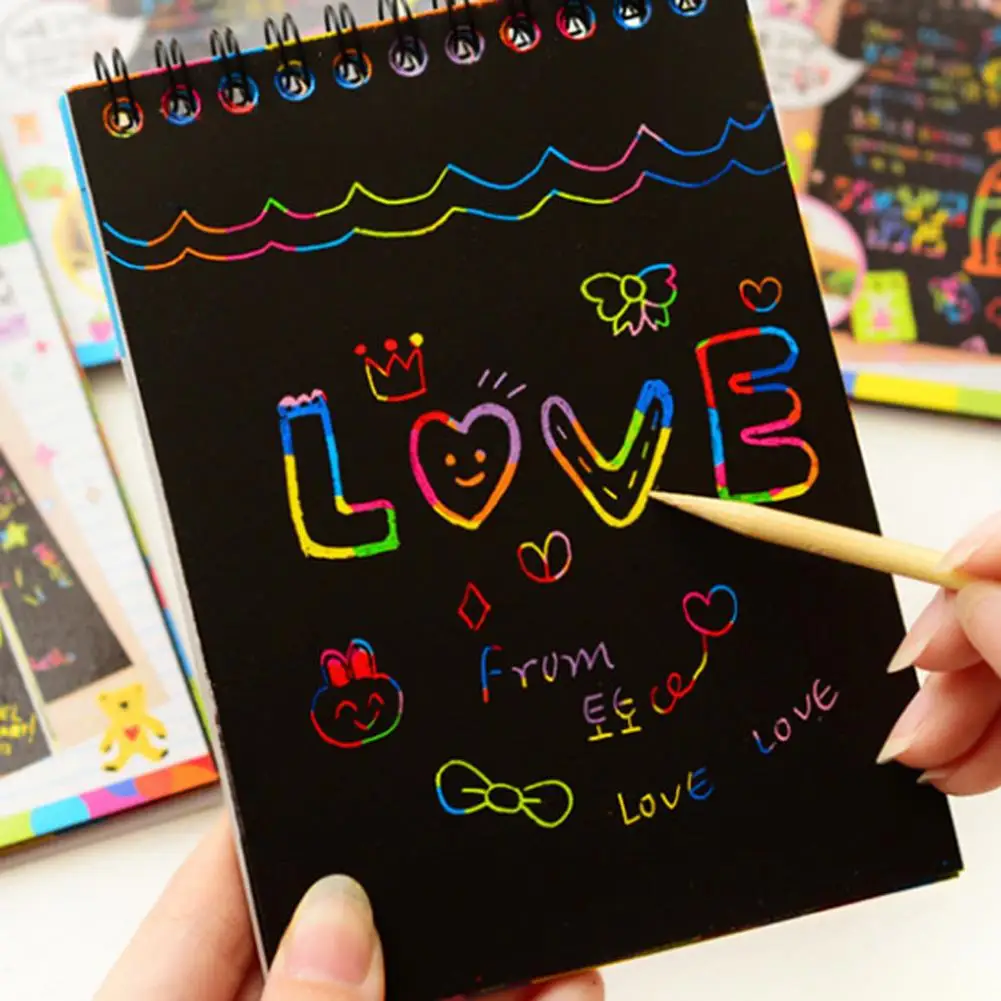 LOVE
From
또또
LOVE
LOVE